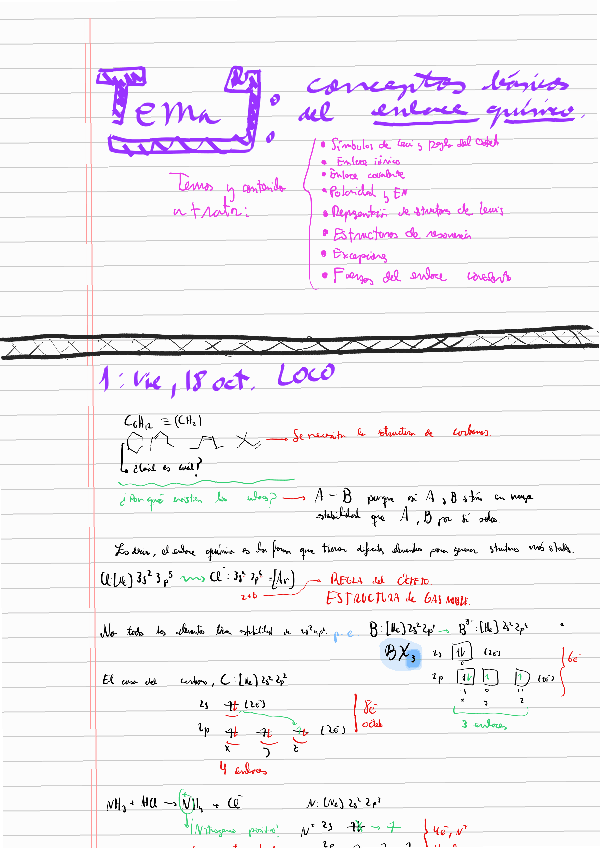 Tema 7: conceptos básicos
del enlace químico.
• Símbolos de Lewis y Regla del Octeto
• Enlace iónico
• Enlace covalente
• Polaridad y EN
Temas y contenido
a tratar:
• Representación de structuras de Lewis
• Estructuras de resonancia
• Excepciones
• Fuerzas del enlace covalente
1: Vie, 18 oct. LOCO
C6H12 ≡ (CH2)
→ Se necesita la structura de carbonos.
↳ ¿Cuál es cuál?
¿Por qué existen los enlaces? → A - B porque si A y B stán en mayor
stabilidad que A, B por sí solos
Es decir, el enlace químico es la forma que tienen diferentes elementos para generar structuras más stables.
Cl:[Ne] 3s² 3p⁵ → Cl⁻: 3s² 3p⁶ = [Ar] → REGLA del OCTETO.
2+6 ESTRUCTURA de GAS NOBLE.
No todos los elementos tienen estabilidad de ns² np⁶, p.e B:[He] 2s² 2p¹ → B³⁻:[He] 2s² 2p⁴
BX₃ 2s (2e⁻) 6e⁻
2p (2e⁻)
El caso del carbono, C:[He] 2s² 2p² x y z
2s (2e⁻) 8e⁻ 3 enlaces
2p (2e⁻) octeto
x y z
4 enlaces
NH₃ + HCl → NH₄ + Cl⁻ N:[He] 2s² 2p³
¡Nitrógeno positivo! N⁺ 2s 4e⁻, N⁺
2p